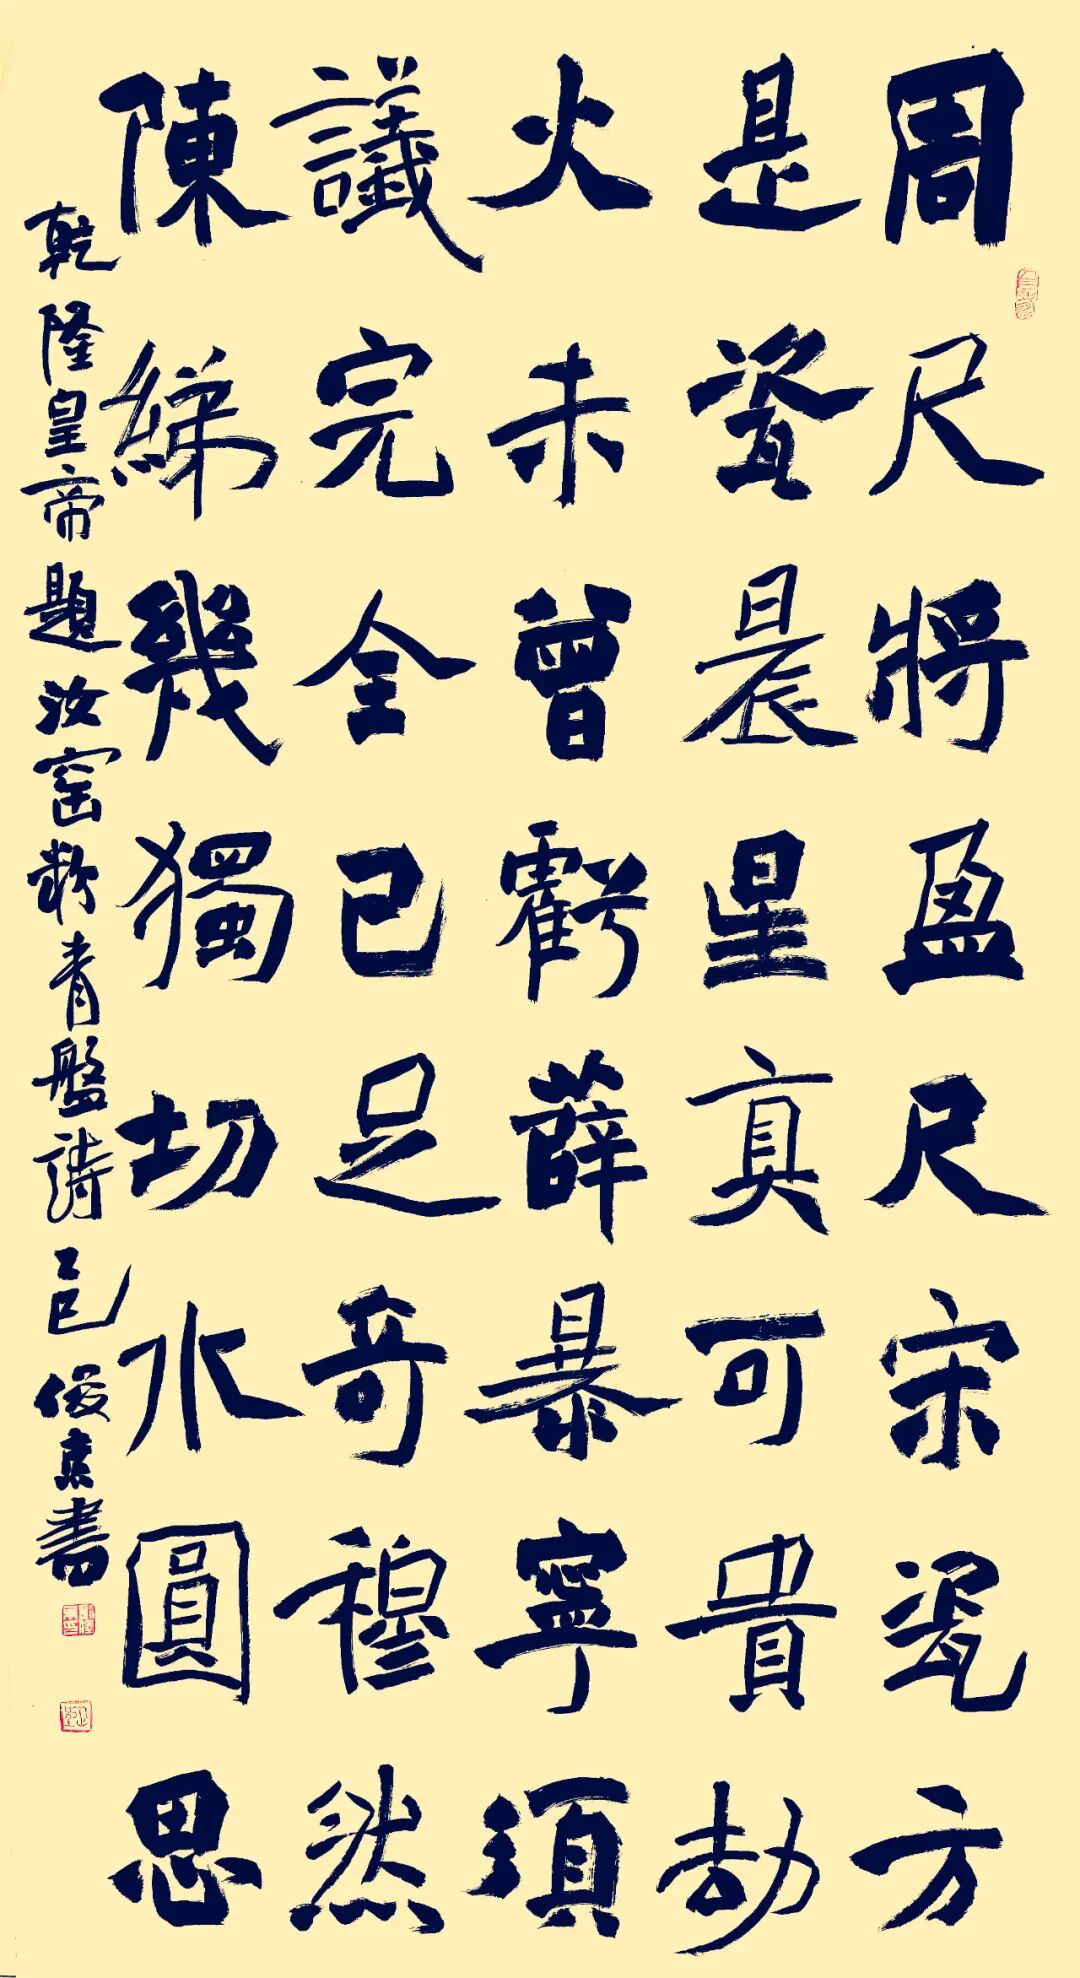 周尺將盈尺宋瓷方
是瓷晨星真可貴劫
火未曾虧薛暴寧須
議完全已足奇穆然
陳綈幾獨切水圓思
乾隆皇帝題汝窑粉青盤詩乙巳俊書